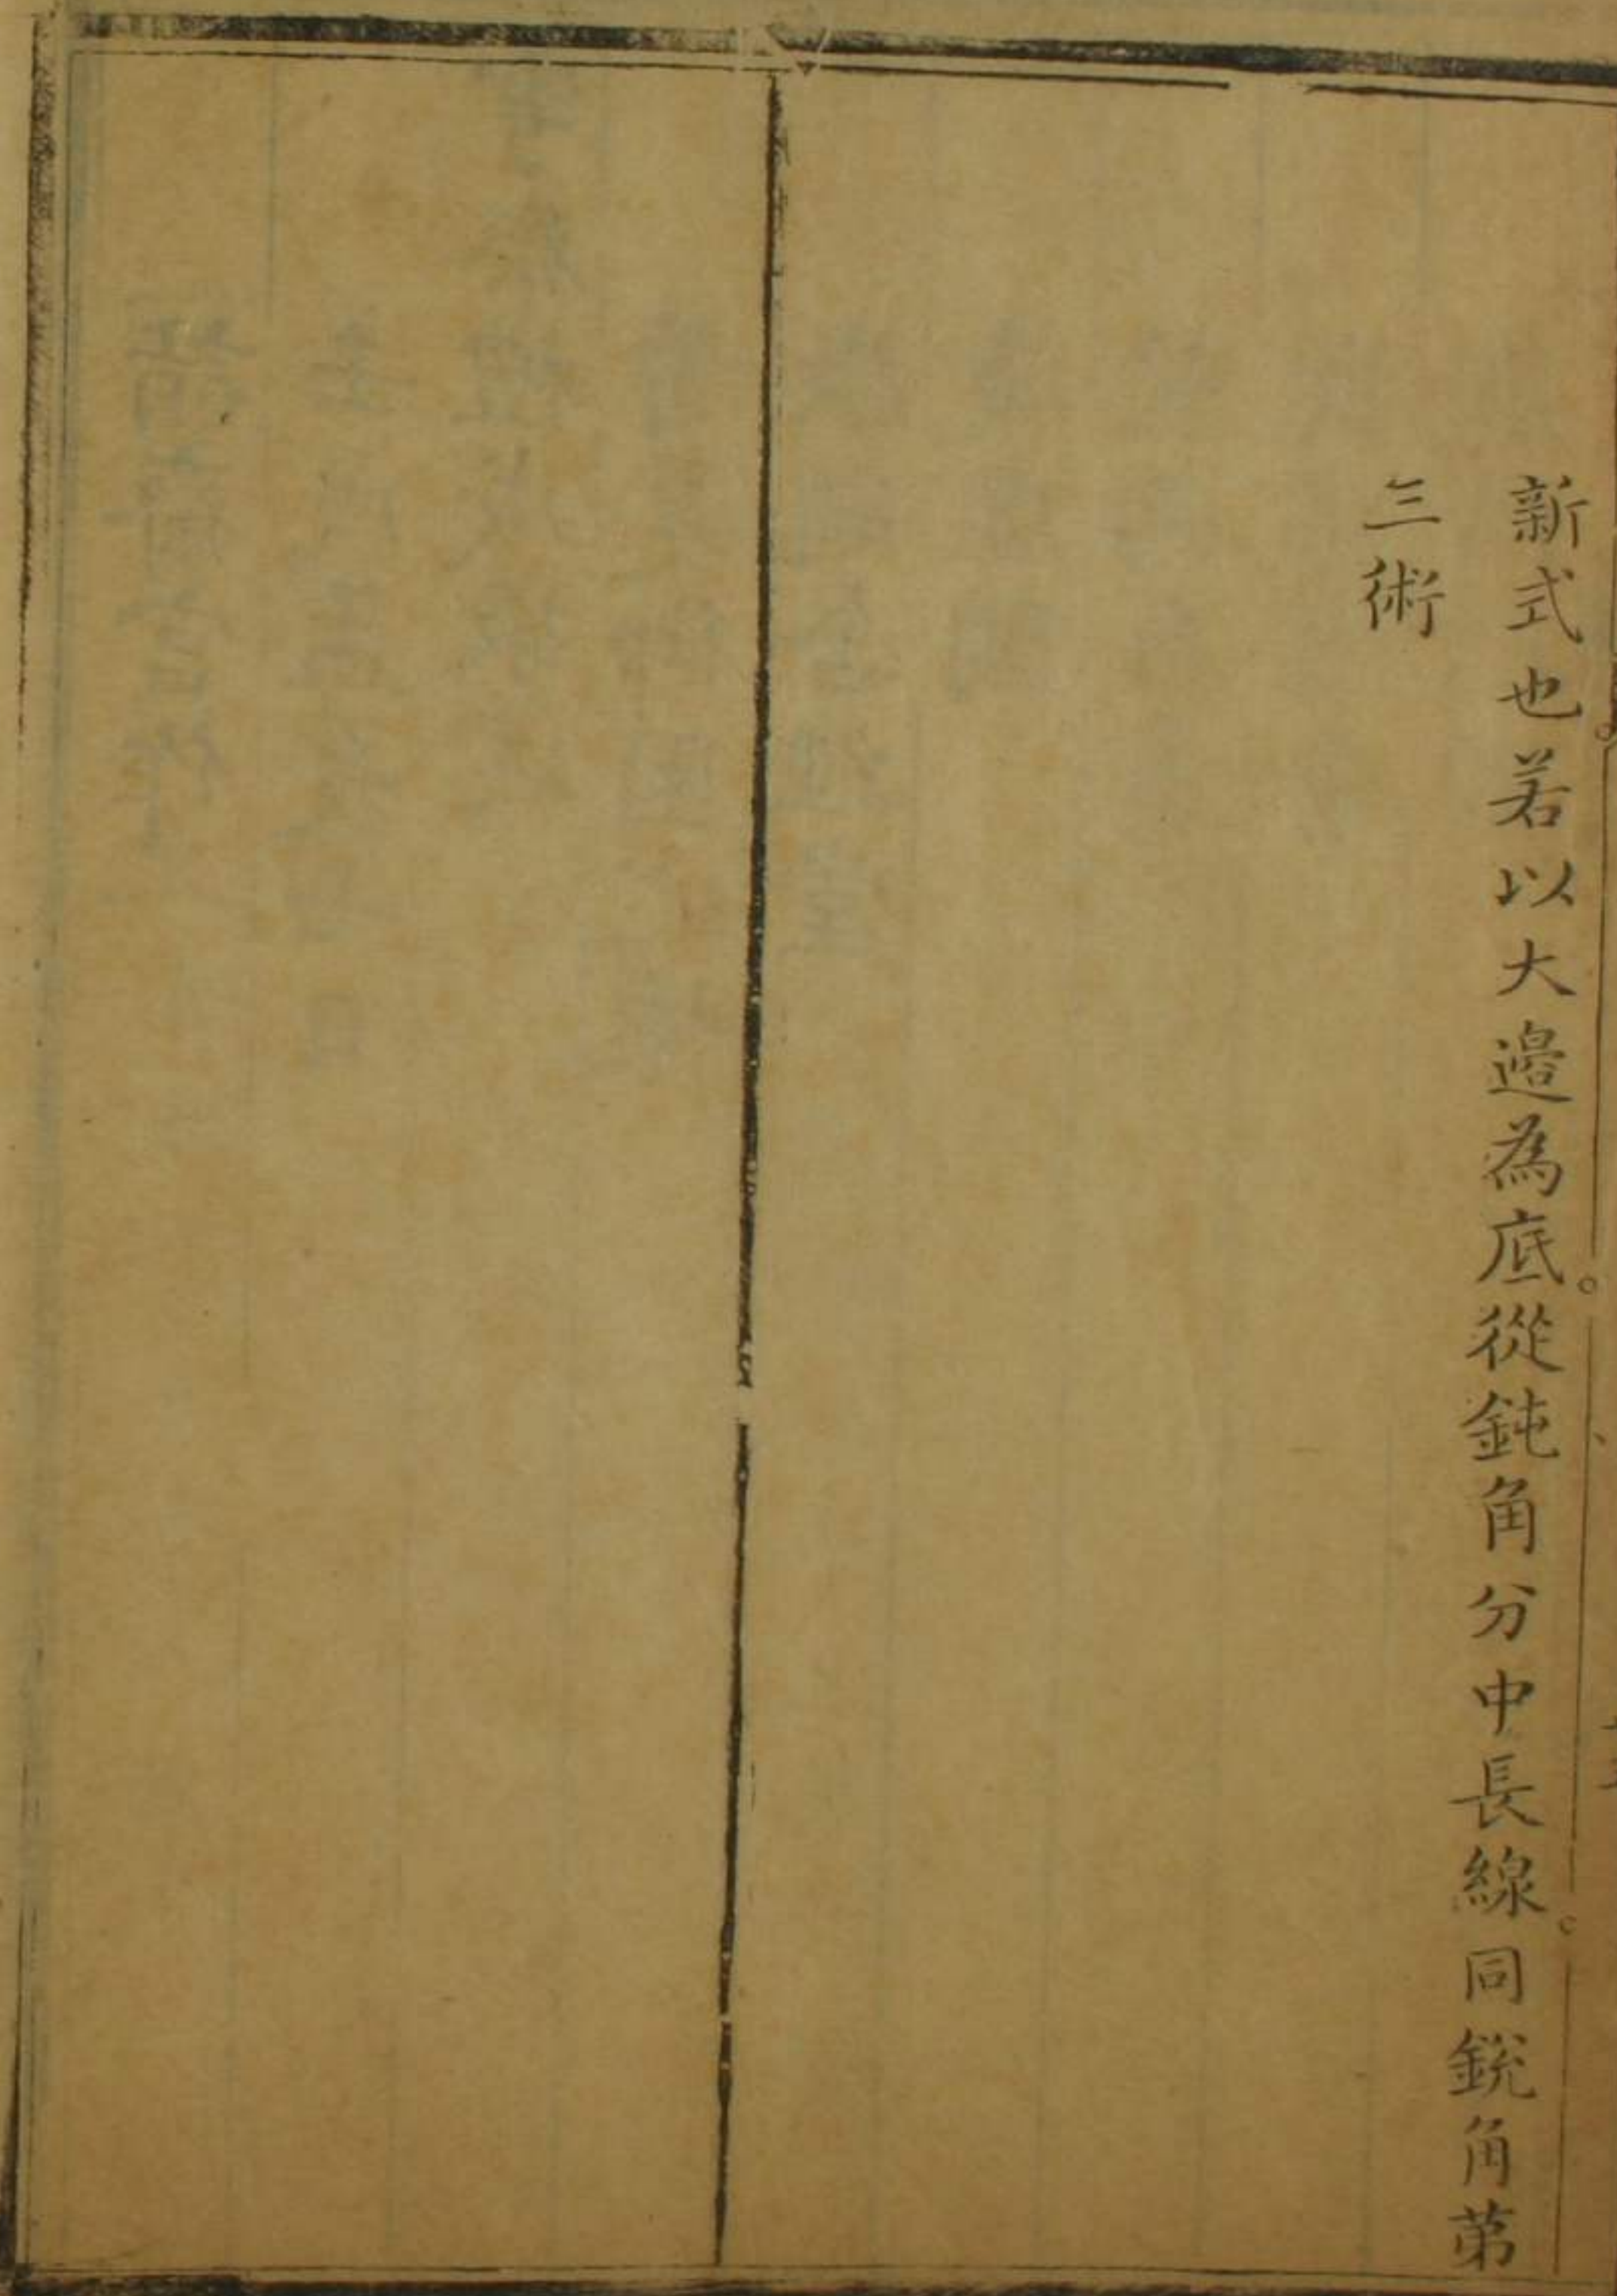 新式也。若以大邉為底。從鈍角分中長線。同銳角苐
三術